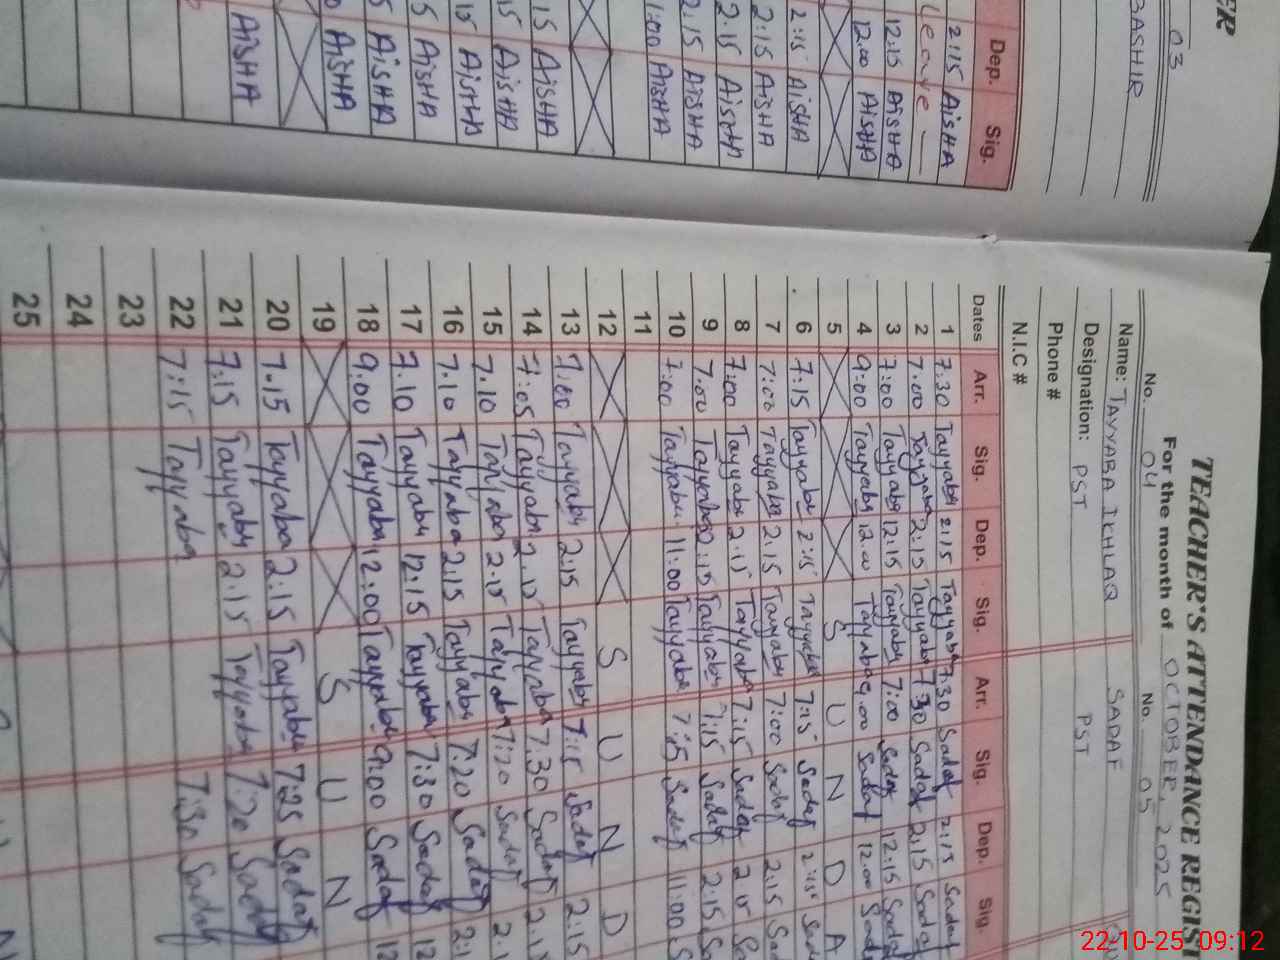 ER
03
BASHIR
Dep. Sig.
2:15 AiSHA
Leave
12.15 AiSHA
12.00 AiSHA
2:15 AiSHA
2:15 AiSHA
2.15 AiSHA
2.15 AiSHA
1:00 AiSHA
15 AiSHA
15 AiSHA
15 AiSHA
5 AiSHA
5 AiSHA
0 AiSHA
AiSHA
TEACHER'S ATTENDANCE REGIST
For the month of OCTOBER, 2025
No. 04 No. 05
Name: TAYYABA IKHLAQ SADAF
Designation: PST PST
Phone #
N.I.C #
Dates Arr. Sig. Dep. Sig. Arr. Sig. Dep. Sig.
1 7.30 Tayyaba 2:15 Tayyaba 7.30 Sadaf 2:15 Sadaf
2 7.00 Tayyaba 2:15 Tayyaba 7:30 Sadaf 2:15 Sadaf
3 7:00 Tayyaba 12:15 Tayyaba 7:00 Sadaf 12:15 Sadaf
4 9:00 Tayyaba 12.00 Tayyaba 9.00 Sadaf 12.00 Sada
5 S U N D A
6 7:15 Tayyaba 2:15 Tayyaba 7:15 Sadaf 2:15 Sada
7 7:00 Tayyaba 2:15 Tayyaba 7:00 Sadaf 2:15 Sa
8 7:00 Tayyaba 2.15 Tayyaba 7:15 Sadaf 2.15 Sa
9 7.00 Tayyaba 2:15 Tayyaba 7:15 Sadaf 2:15 Sa
10 7:00 Tayyaba 11:00 Tayyaba 7:15 Sadaf 11:00 S
11
12 S U N D
13 7:00 Tayyaba 2:15 Tayyaba 7:15 Sadaf 2:15
14 7:05 Tayyaba 2.15 Tayyaba 7.30 Sadaf 2.1
15 7.10 Tayyaba 2:15 Tayyaba 7:20 Sadaf 2.
16 7.10 Tayyaba 2:15 Tayyaba 7.20 Sadaf 2:1
17 7.10 Tayyaba 12:15 Tayyaba 7:30 Sadaf 12
18 9:00 Tayyaba 12:00 Tayyaba 9:00 Sadaf 12
19 S U N
20 7.15 Tayyaba 2:15 Tayyaba 7:25 Sadaf
21 7:15 Tayyaba 2:15 Tayyaba 7:20 Sadaf
22 7:15 Tayyaba 7:30 Sadaf
23
24
25
22-10-25 09:12